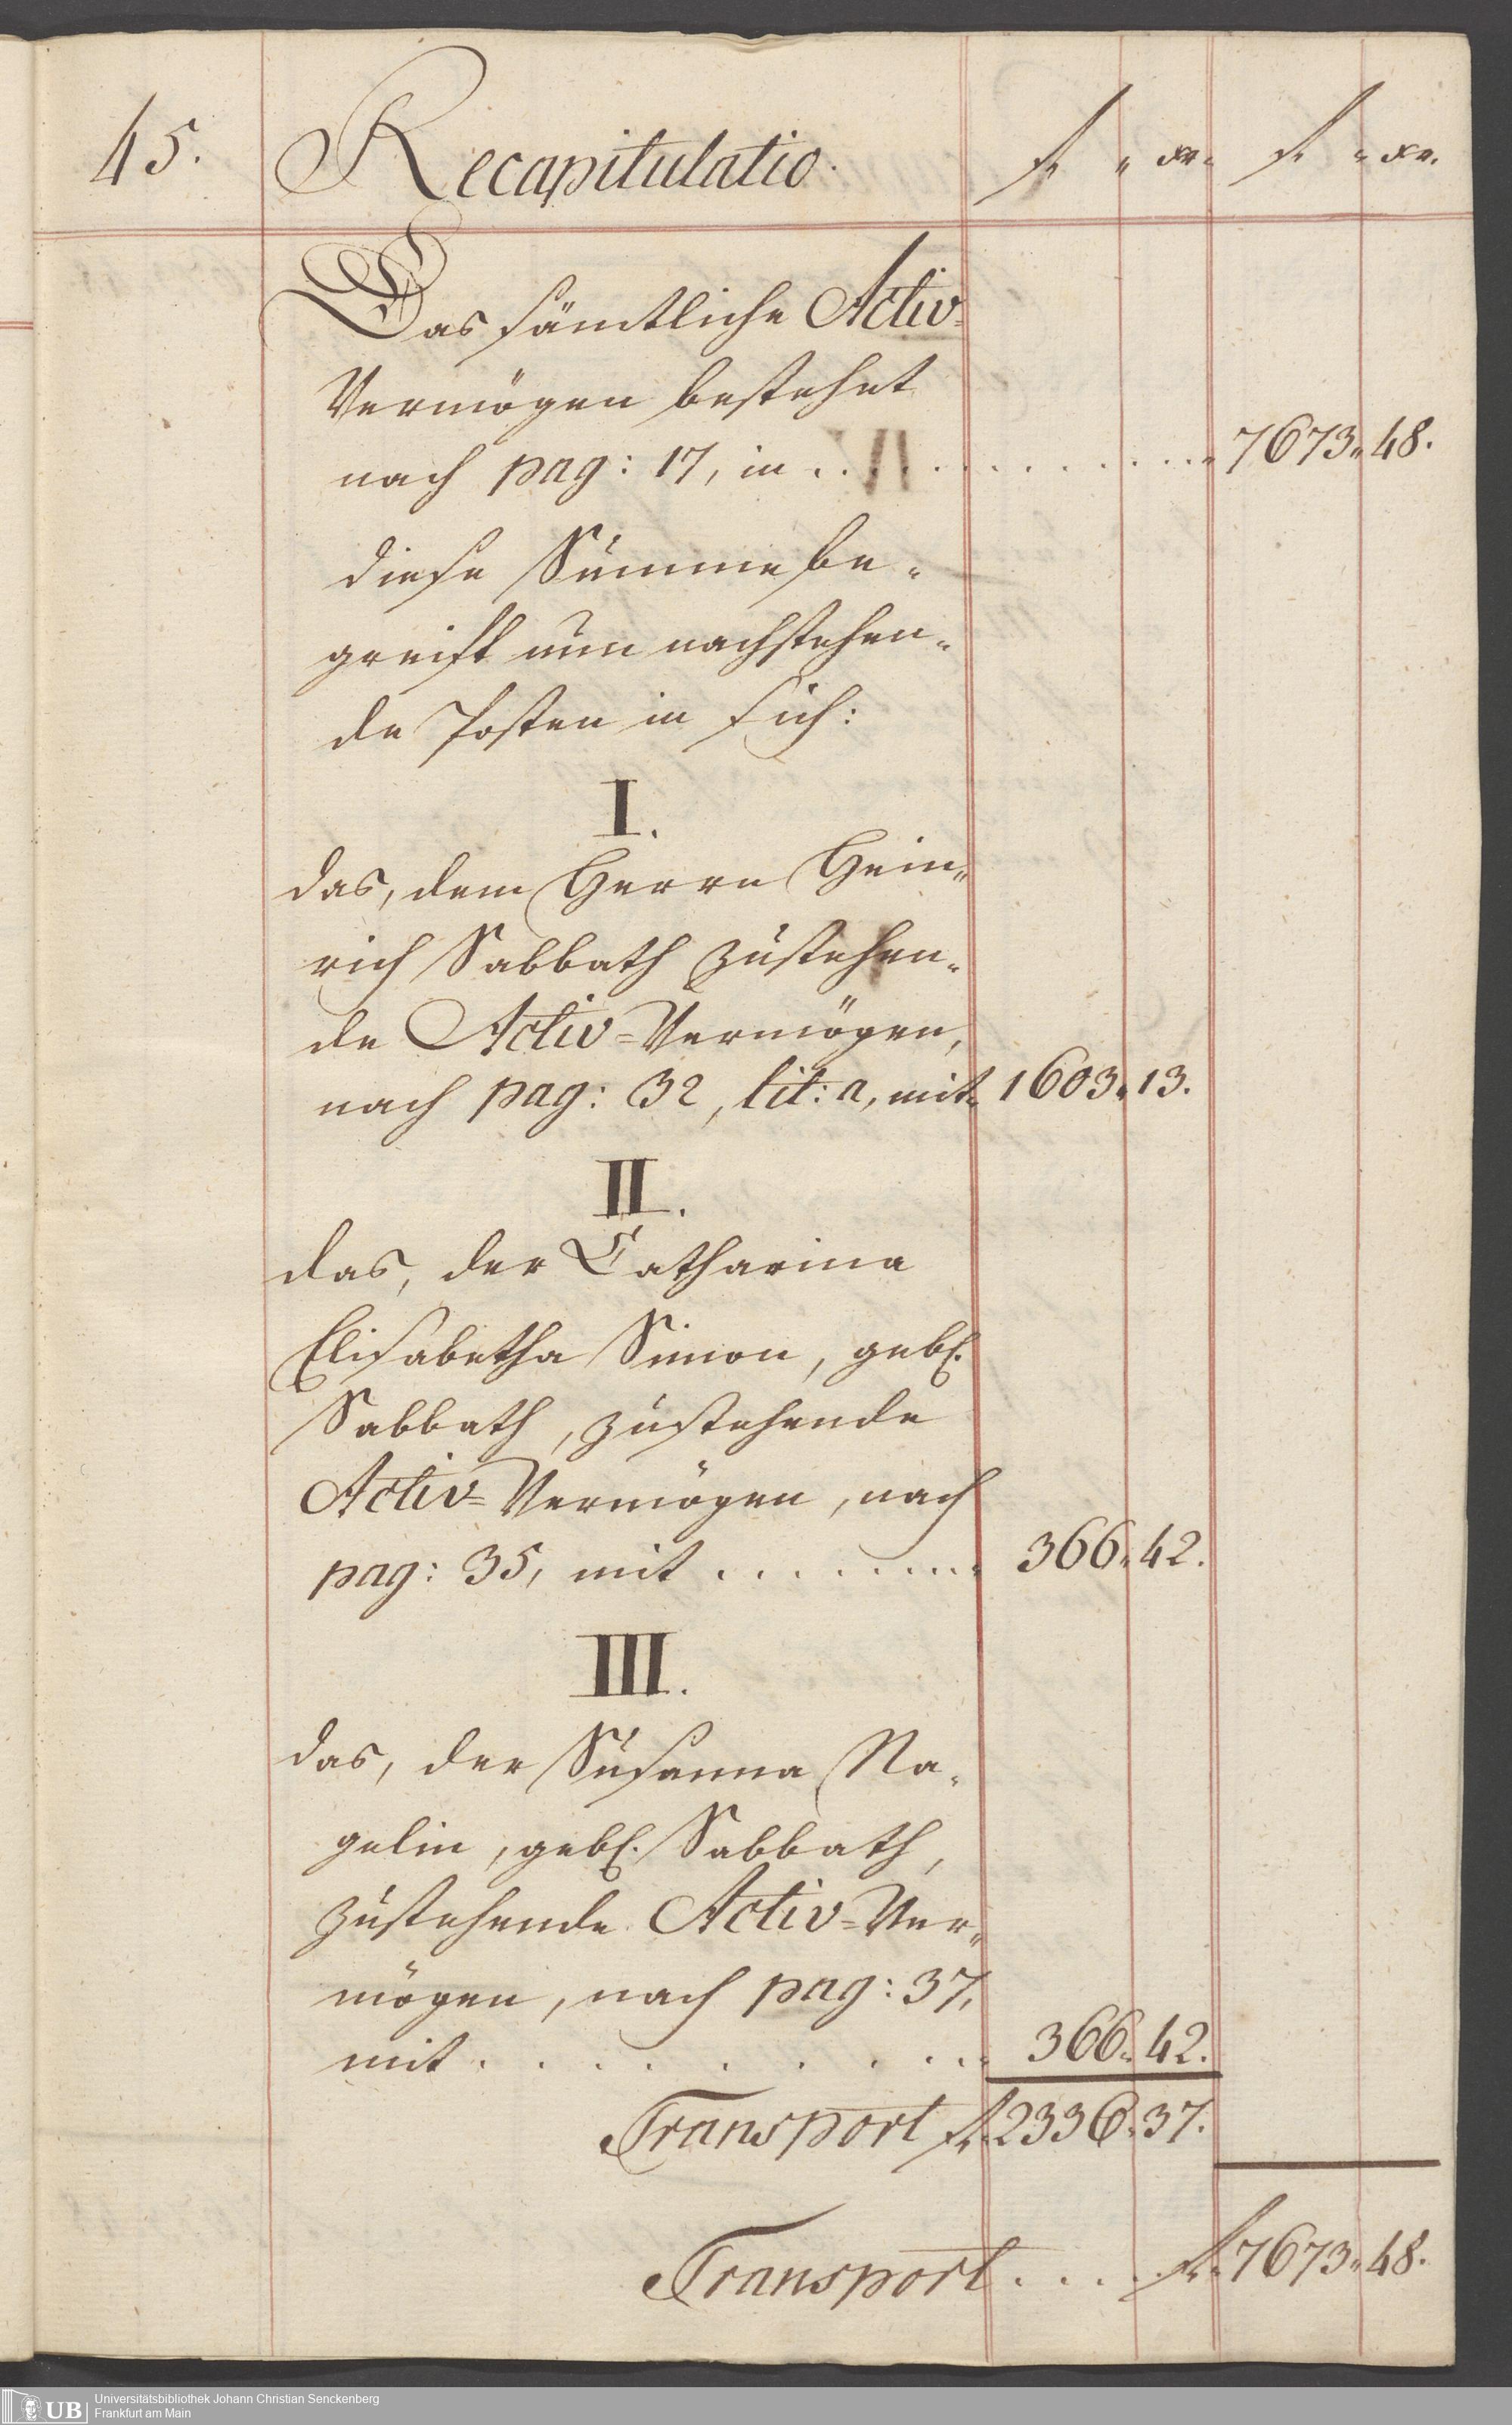 45. Recapitulatio. f „ xr. f „ xr.
Das sämtliche Activ-
Vermögen bestehet
nach pag: 17, in . . . . . . . . . . 7673„ 48.
diese Summe be-
greift nun nachstehen-
de Posten in sich:
I.
das, dem Herrn Hein-
rich Sabbath zustehen-
de Activ-Vermögen,
nach pag: 32, lit: a, mit 1603„ 13.
II.
das, der Catharina
Elisabetha Simon, gebh.
Sabbath, zustehende
Activ-Vermögen, nach
pag: 35, mit . . . . . . . . 366„ 42.
III.
das, der Susanna Na-
gelin, gebh. Sabbath,
zustehende Activ-Ver-
mögen, nach pag: 37,
mit . . . . . . . . . 366„ 42.
Transport f 2336„ 37.
Transport . . . . f 7673„ 48.
UB Universitätsbibliothek Johann Christian Senckenberg
Frankfurt am Main